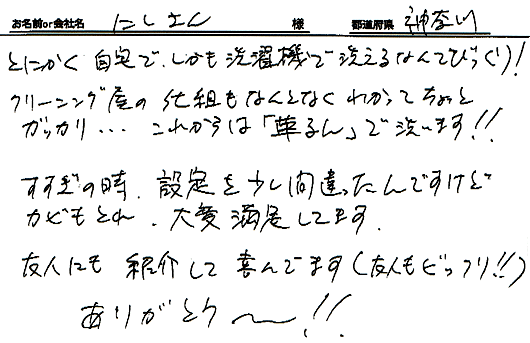 お名前or会社名 にしさん 様 都道府県 神奈川
とにかく自宅で、しかも洗濯機で洗えるなんてびっくり!
クリーニング屋の仕組もなんとなくわかってちょっと
ガッカリ... これからは「革るん」で洗います!!
すすぎの時、設定を少し間違ったんですけど
カビもとれ、大変満足してます.
友人にも紹介して喜んでます(友人もビックリ!!)
ありがとう〜!!